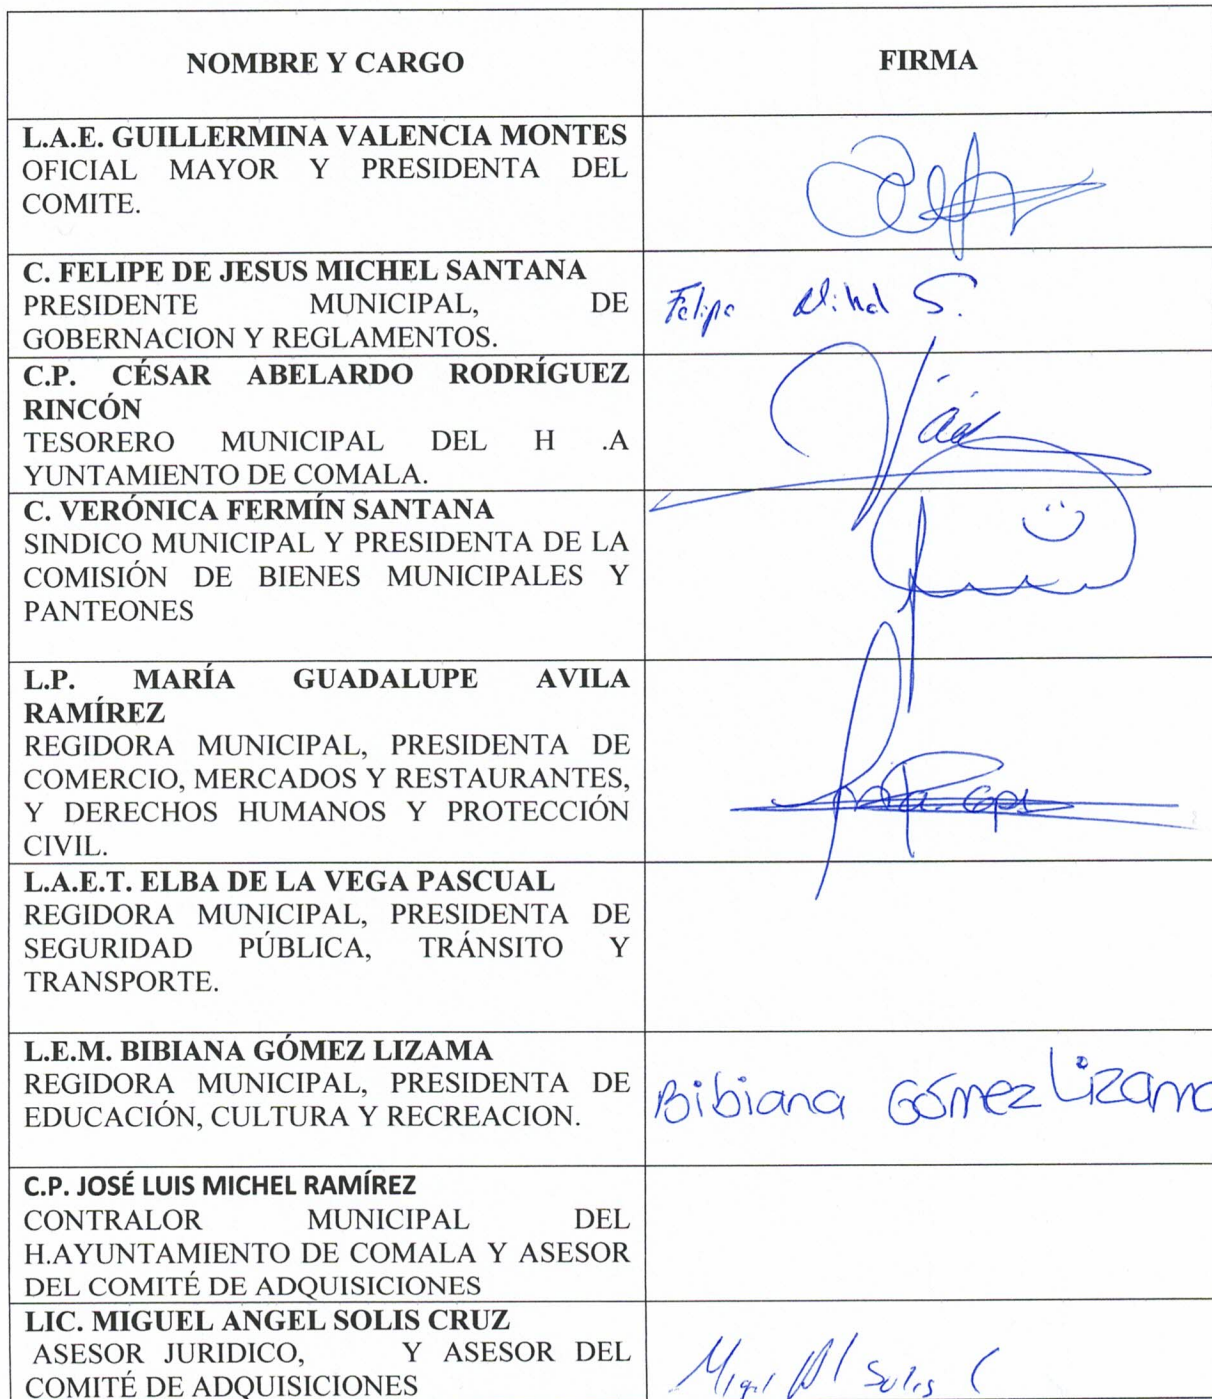 NOMBRE Y CARGO
FIRMA
L.A.E. GUILLERMINA VALENCIA MONTES
OFICIAL MAYOR Y PRESIDENTA DEL
COMITE.
C. FELIPE DE JESUS MICHEL SANTANA
PRESIDENTE MUNICIPAL, DE
GOBERNACION Y REGLAMENTOS.
Felipe Michel S.
C.P. CÉSAR ABELARDO RODRÍGUEZ
RINCÓN
TESORERO MUNICIPAL DEL H .A
YUNTAMIENTO DE COMALA.
C. VERÓNICA FERMÍN SANTANA
SINDICO MUNICIPAL Y PRESIDENTA DE LA
COMISIÓN DE BIENES MUNICIPALES Y
PANTEONES
L.P. MARÍA GUADALUPE AVILA
RAMÍREZ
REGIDORA MUNICIPAL, PRESIDENTA DE
COMERCIO, MERCADOS Y RESTAURANTES,
Y DERECHOS HUMANOS Y PROTECCIÓN
CIVIL.
L.A.E.T. ELBA DE LA VEGA PASCUAL
REGIDORA MUNICIPAL, PRESIDENTA DE
SEGURIDAD PÚBLICA, TRÁNSITO Y
TRANSPORTE.
L.E.M. BIBIANA GÓMEZ LIZAMA
REGIDORA MUNICIPAL, PRESIDENTA DE
EDUCACIÓN, CULTURA Y RECREACION.
Bibiana Gómez Lizama
C.P. JOSÉ LUIS MICHEL RAMÍREZ
CONTRALOR MUNICIPAL DEL
H.AYUNTAMIENTO DE COMALA Y ASESOR
DEL COMITÉ DE ADQUISICIONES
LIC. MIGUEL ANGEL SOLIS CRUZ
ASESOR JURIDICO, Y ASESOR DEL
COMITÉ DE ADQUISICIONES
Solis C